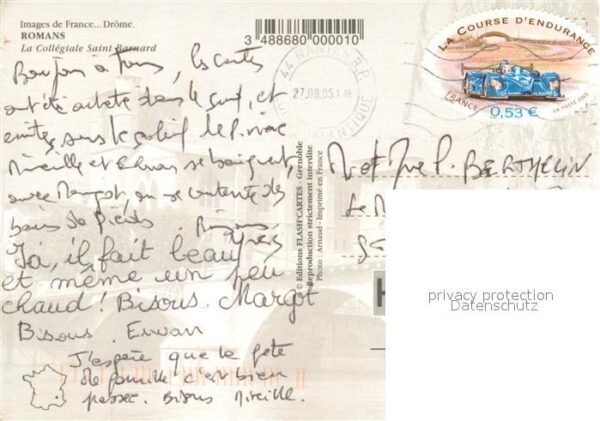 Images de France... Drôme.
ROMANS
La Collégiale Saint Barnard
3 488680 000010
LA COURSE D'ENDURANCE
FRANCE
LA POSTE 2005
0,53 €
44 NANTES R.P.
27.08.05
ATLANTIQUE
Bonjour à tous, les cartes
ont été achetées dans le sud, et
écrites sous le soleil
Mireille et Erwan se baignent,
avec Margot, on se contente des
bains de pieds. Bisous,
Yves
Ici, il fait beau
et même un peu
chaud! Bisous. Margot
Bisous. Erwan
J'espère que la fête
de famille s'est bien
passée. Bisous Mireille.
© Editions FLASH'CARTES - Grenoble
Reproduction strictement interdite
Photo : Arnaud - Imprimé en France
P. BERTHELIN
privacy protection
Datenschutz